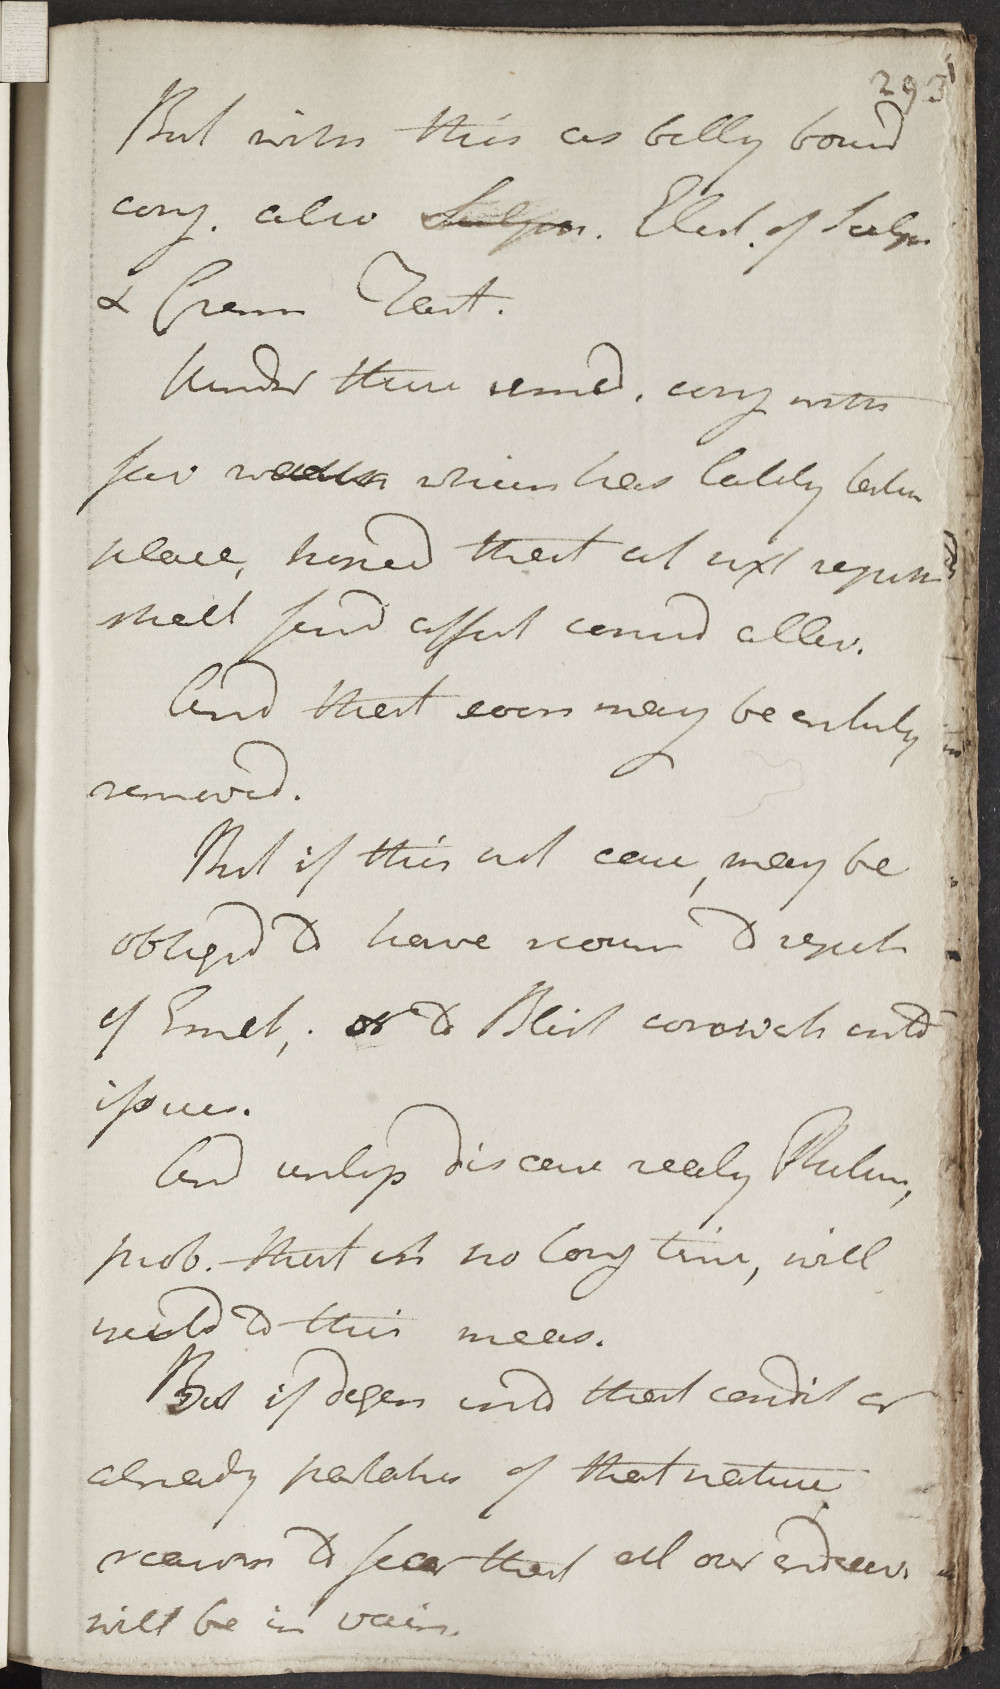 293
But with this as belly bound
conj. also Sulphur. Elect. of Sulph
& Cream Tart.
Under these remed. conj with
fav weath which has lately taken
place, hoped that at next report
shall find affect consid allev.
And that even may be entirely
removed.
But if this not case, may be
obliged to have recour to repet
of Emet, or to Blist corrosives and
issues.
And unless disease really Phthis,
prob. that in no long time, will
yield to this meas.
But if degen into that condit or
already partakes of that nature
reason to fear that all our endeav.
will be in vain.